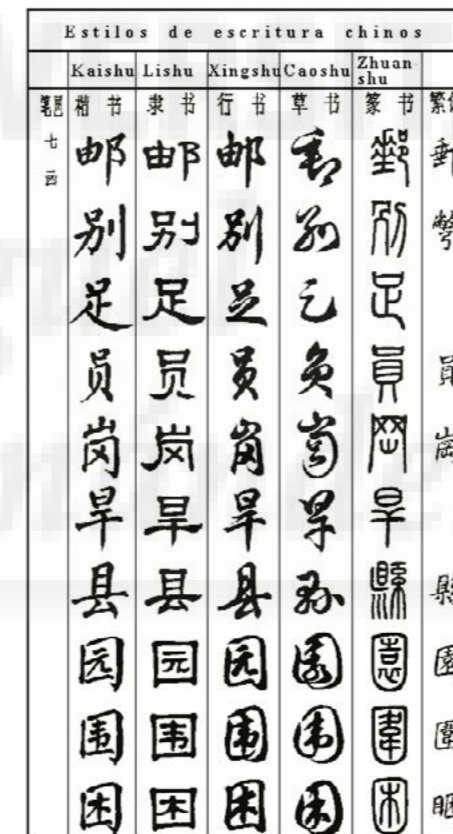 Estilos de escritura chinos
Kaishu Lishu Xingshu Caoshu Zhuan-shu
楷书 隶书 行书 草书 篆书
七画
邮 邮 邮 邮 郵
别 别 别 别 别
足 足 足 足 足
员 员 员 员 員 員
岗 岗 岗 岗 岡
旱 旱 旱 旱 旱
县 县 县 县 縣
园 园 园 园 園
围 围 围 围 圍
困 困 困 困 困